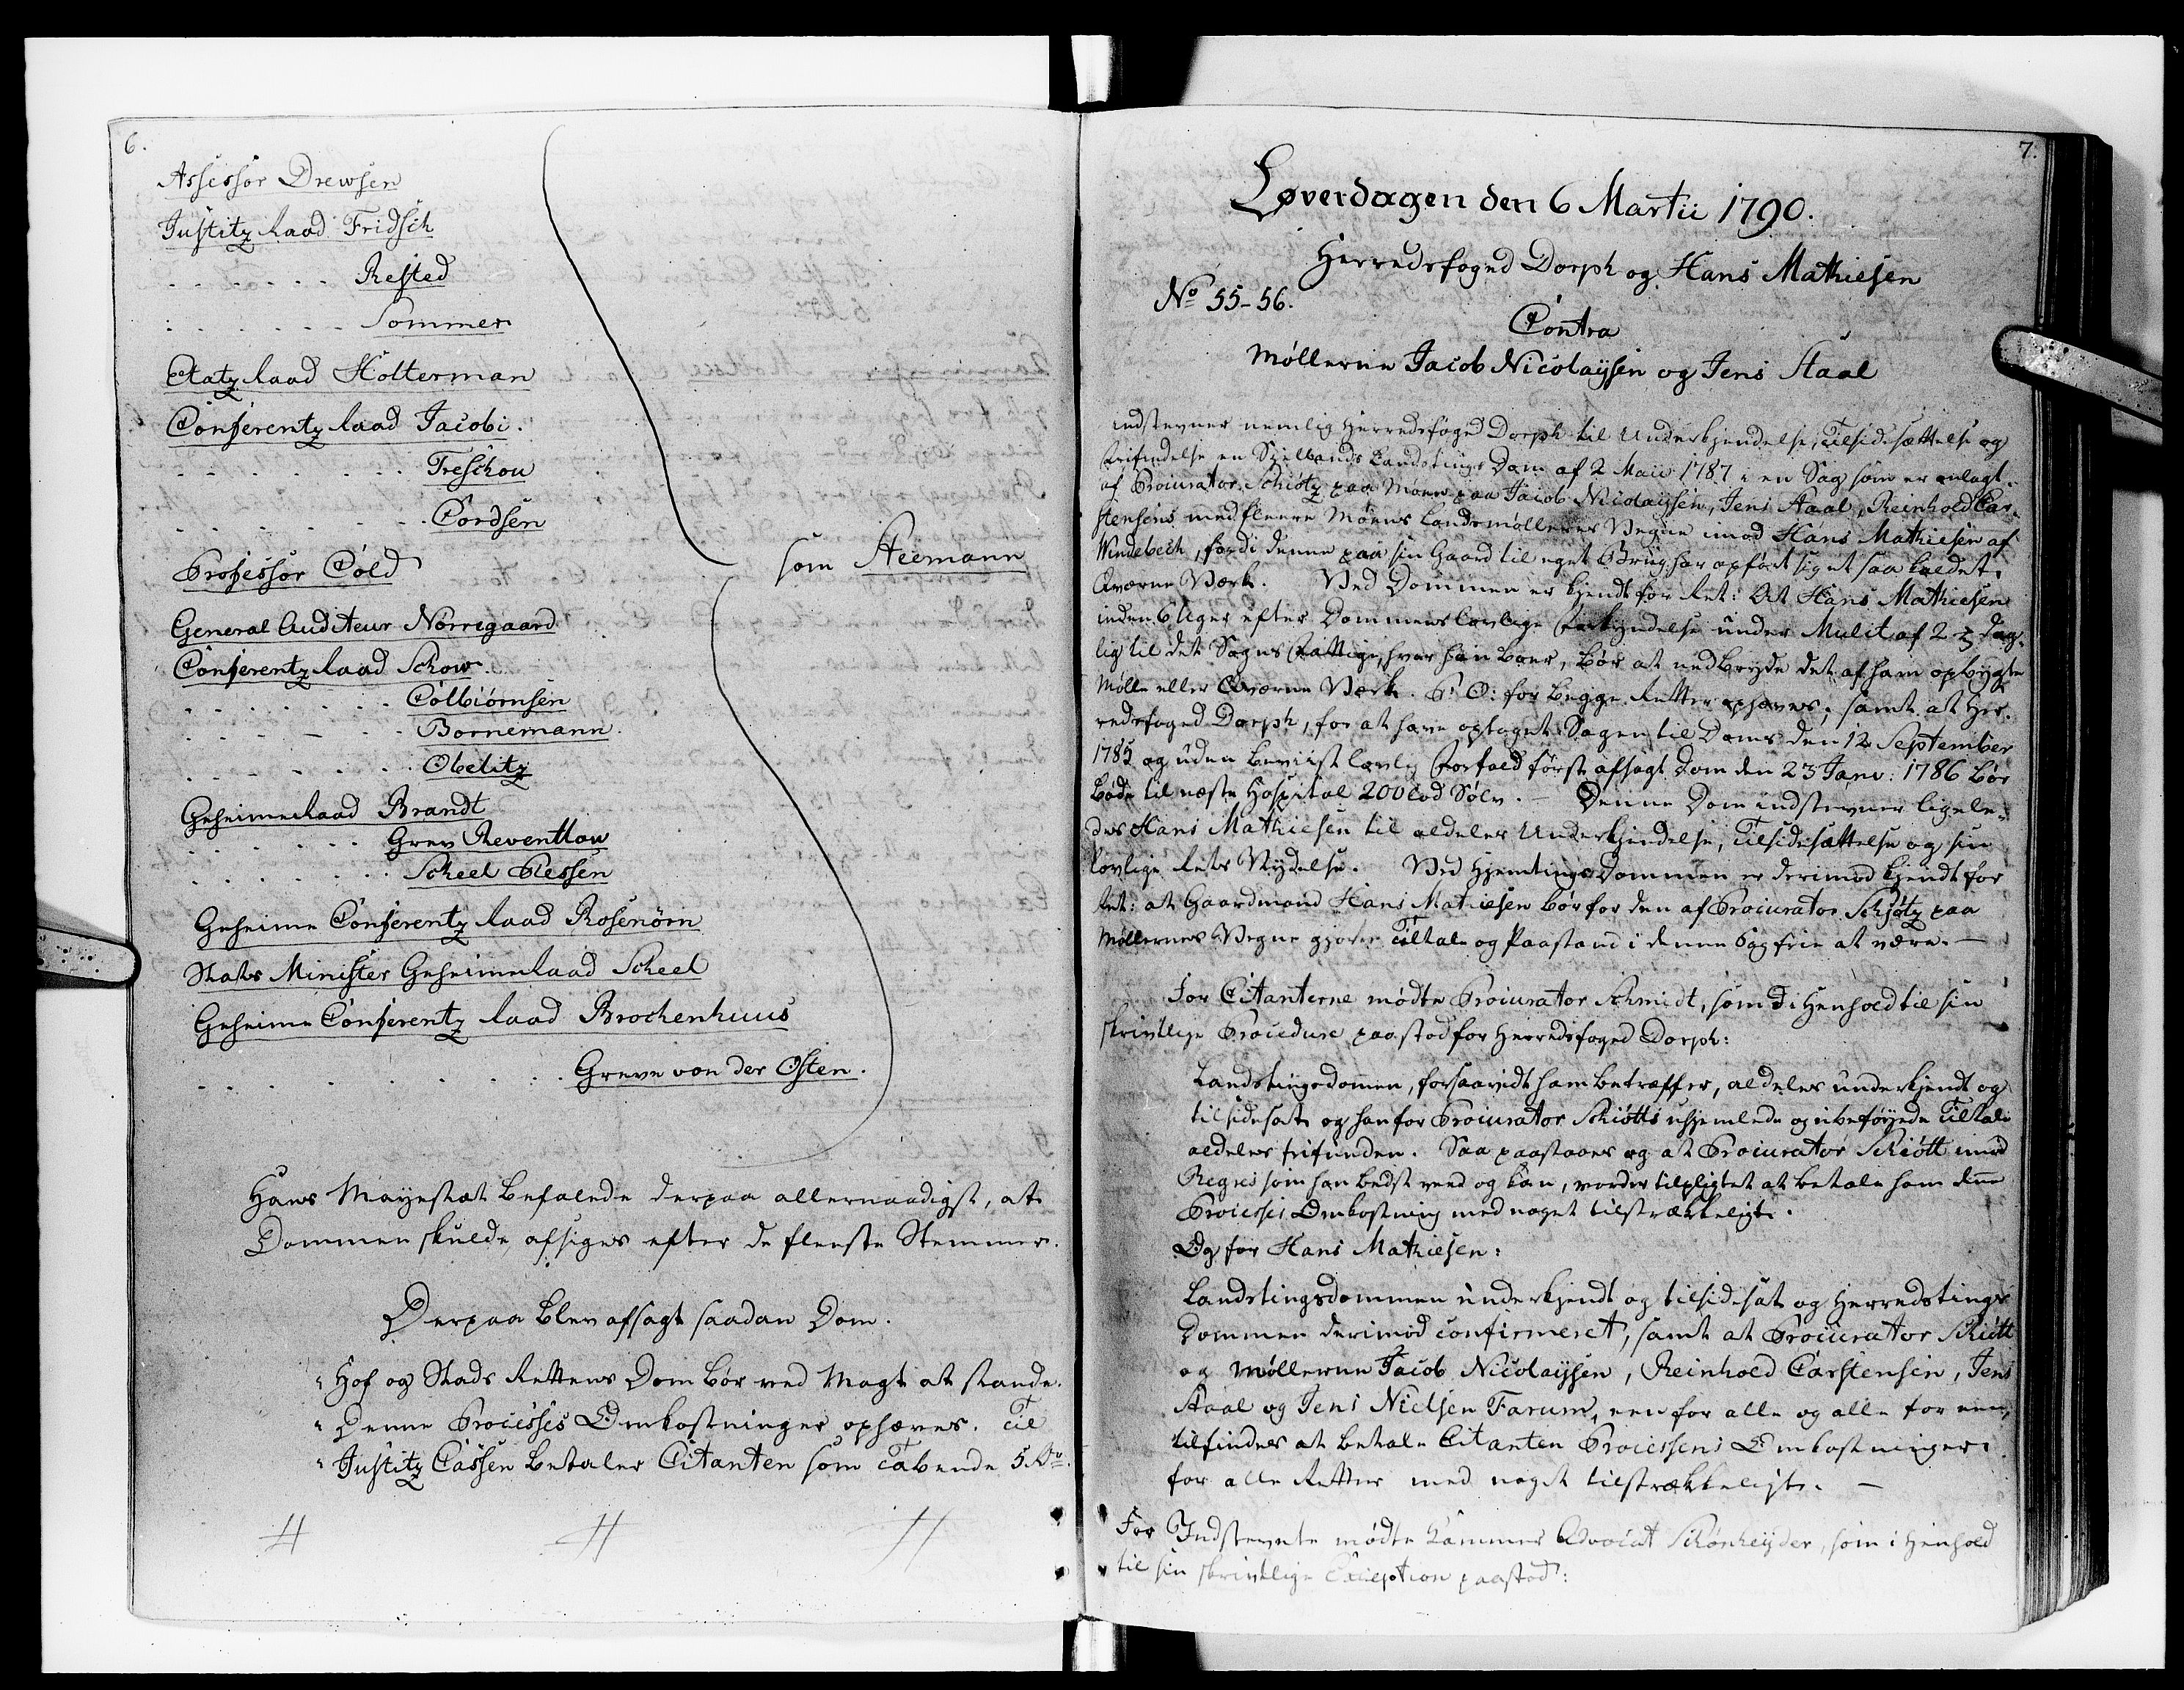 6.
Assessor Drewsen
Justitz Raad Fridsch
. . . . . . . Rested
. . . . . . . Sommer
Etatz Raad Holterman
Conferentz Raad Jacobi.
. . . . . . . Treschou
. . . . . . . Cordsen
Professor Cold
som Aeemann
General Auditeur Nørregaard
Conferentz Raad Schow.
. . . . . . . Colbiørnsen
. . . . . . . Bornemann.
. . . . . . . Obelitz
Geheimeraad Brandt
. . . . . . . Grev Reventlow
. . . . . . . Scheel Plessen
Geheime Conferentz Raad Rosenørn
Stats Minister Geheimeraad Scheel
Geheime Conferentz Raad Brockenhuus
. . . . . . . Greve von der Osten.
Hans Mayestæt befalede derpaa allernaadigst, at
Dommen skulde afsiges efter de fleeste Stemmer.
Derpaa blev afsagt saadan Dom.
" Hof og Stads Rettens Dom bør ved Magt at stande.
" Denne Processes Omkostninger ophæves. Til
" Justitz Cassen betaler Citanten som Tabende 5 Rd.
7.
Løverdagen den 6 Martii 1790.
Herredsfoged Dorph og Hans Mathiesen
No 55-56.
Contra
Møllerne Jacob Nicolaysen og Jens Staal
indstevner nemlig Herredsfoged Dorph til Underkjendelse, Tilsidesættelse og
Frifindelse en Siellands Landstings Dom af 2 Maii 1787 i en Sag som er anlagt
af Procurator Schiøtz paa Møen paa Jacob Nicolaysen, Jens Staal, Reinhold Car-
stensens med fleere Møens Landsmølleres Vegne imod Hans Mathiesen af
Windebeck, fordi denne paa sin Gaard til eget Brug har opført sig et saa kaldet
Qværne Værk. Ved Dommen er kjendt for Ret: At Hans Mathiesen
inden 6 Uger efter Dommens lovlige Forkyndelse under Mulct af 2 ℔ dag-
lig til det Sogns Fattige, hvor han boer, bør at nedbryde det af ham opbygte
Mølle eller Qværne Værk. P: O: for begge Retter ophæves; samt at Her-
redsfoged Dorph, for at have optaget Sagen til Doms den 12 September
1785 og uden beviist lovlig Forfald først afsagt Dom den 23 Janv: 1786 bør
bøde til næste Hospital 200 Lod Sølv. — Denne Dom indstevner ligele-
des Hans Mathiesen til aldeles Underkjendelse, Tilsidesættelse og sin
lovlige Rets Nydelse. Ved Hjemtings Dommen er derimod kjendt for
Ret: at Gaardmand Hans Mathiesen bør for den af Procurator Schiøtz paa
Møllernes Vegne gjorde Tiltale og Paastand i denne Sag frie at være. —
For Citanterne mødte Procurator Schmidt, som i Henhold til sin
skrivtlige Procedure paastod for Herredsfoged Dorph:
Landstingsdommen, forsaavidt ham betræffer, aldeles underkjendt og
tilsidesat og han for Procurator Schiøtts uhjemlede og ubeføyede Tiltale
aldeles frifunden. Saa paastaaes og at Procurator Schiøtt imod
Regres som han bedst veed og kan, vorder tilpligtet at betale ham denne
Processes Omkostning med noget tilstrækkeligt.
Og for Hans Mathiesen:
Landstingsdommen underkjendt og tilsidesat og Herredstings
Dommen derimod confirmeret, samt at Procurator Schiøtt
og Møllerne Jacob Nicolaysen, Reinhold Carstensen, Jens
Staal og Jens Nielsen Farum, een for alle og alle for een,
tilfindes at betale Citanten Processens Omkostninger
for alle Retter med noget tilstrækkeligt. —
For Indstevnte mødte Kammer Advocat Schønheyder, som i Henhold
til sin skrivtlige Exception paastod: